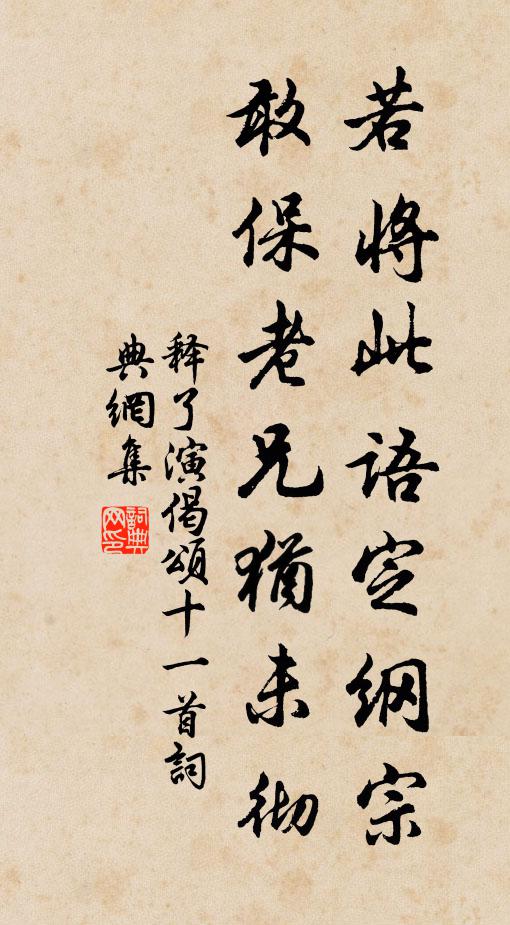 若将此语定纲宗
敢保老兄犹未彻
释了演偈颂十一首詞
典網集
詞典网印